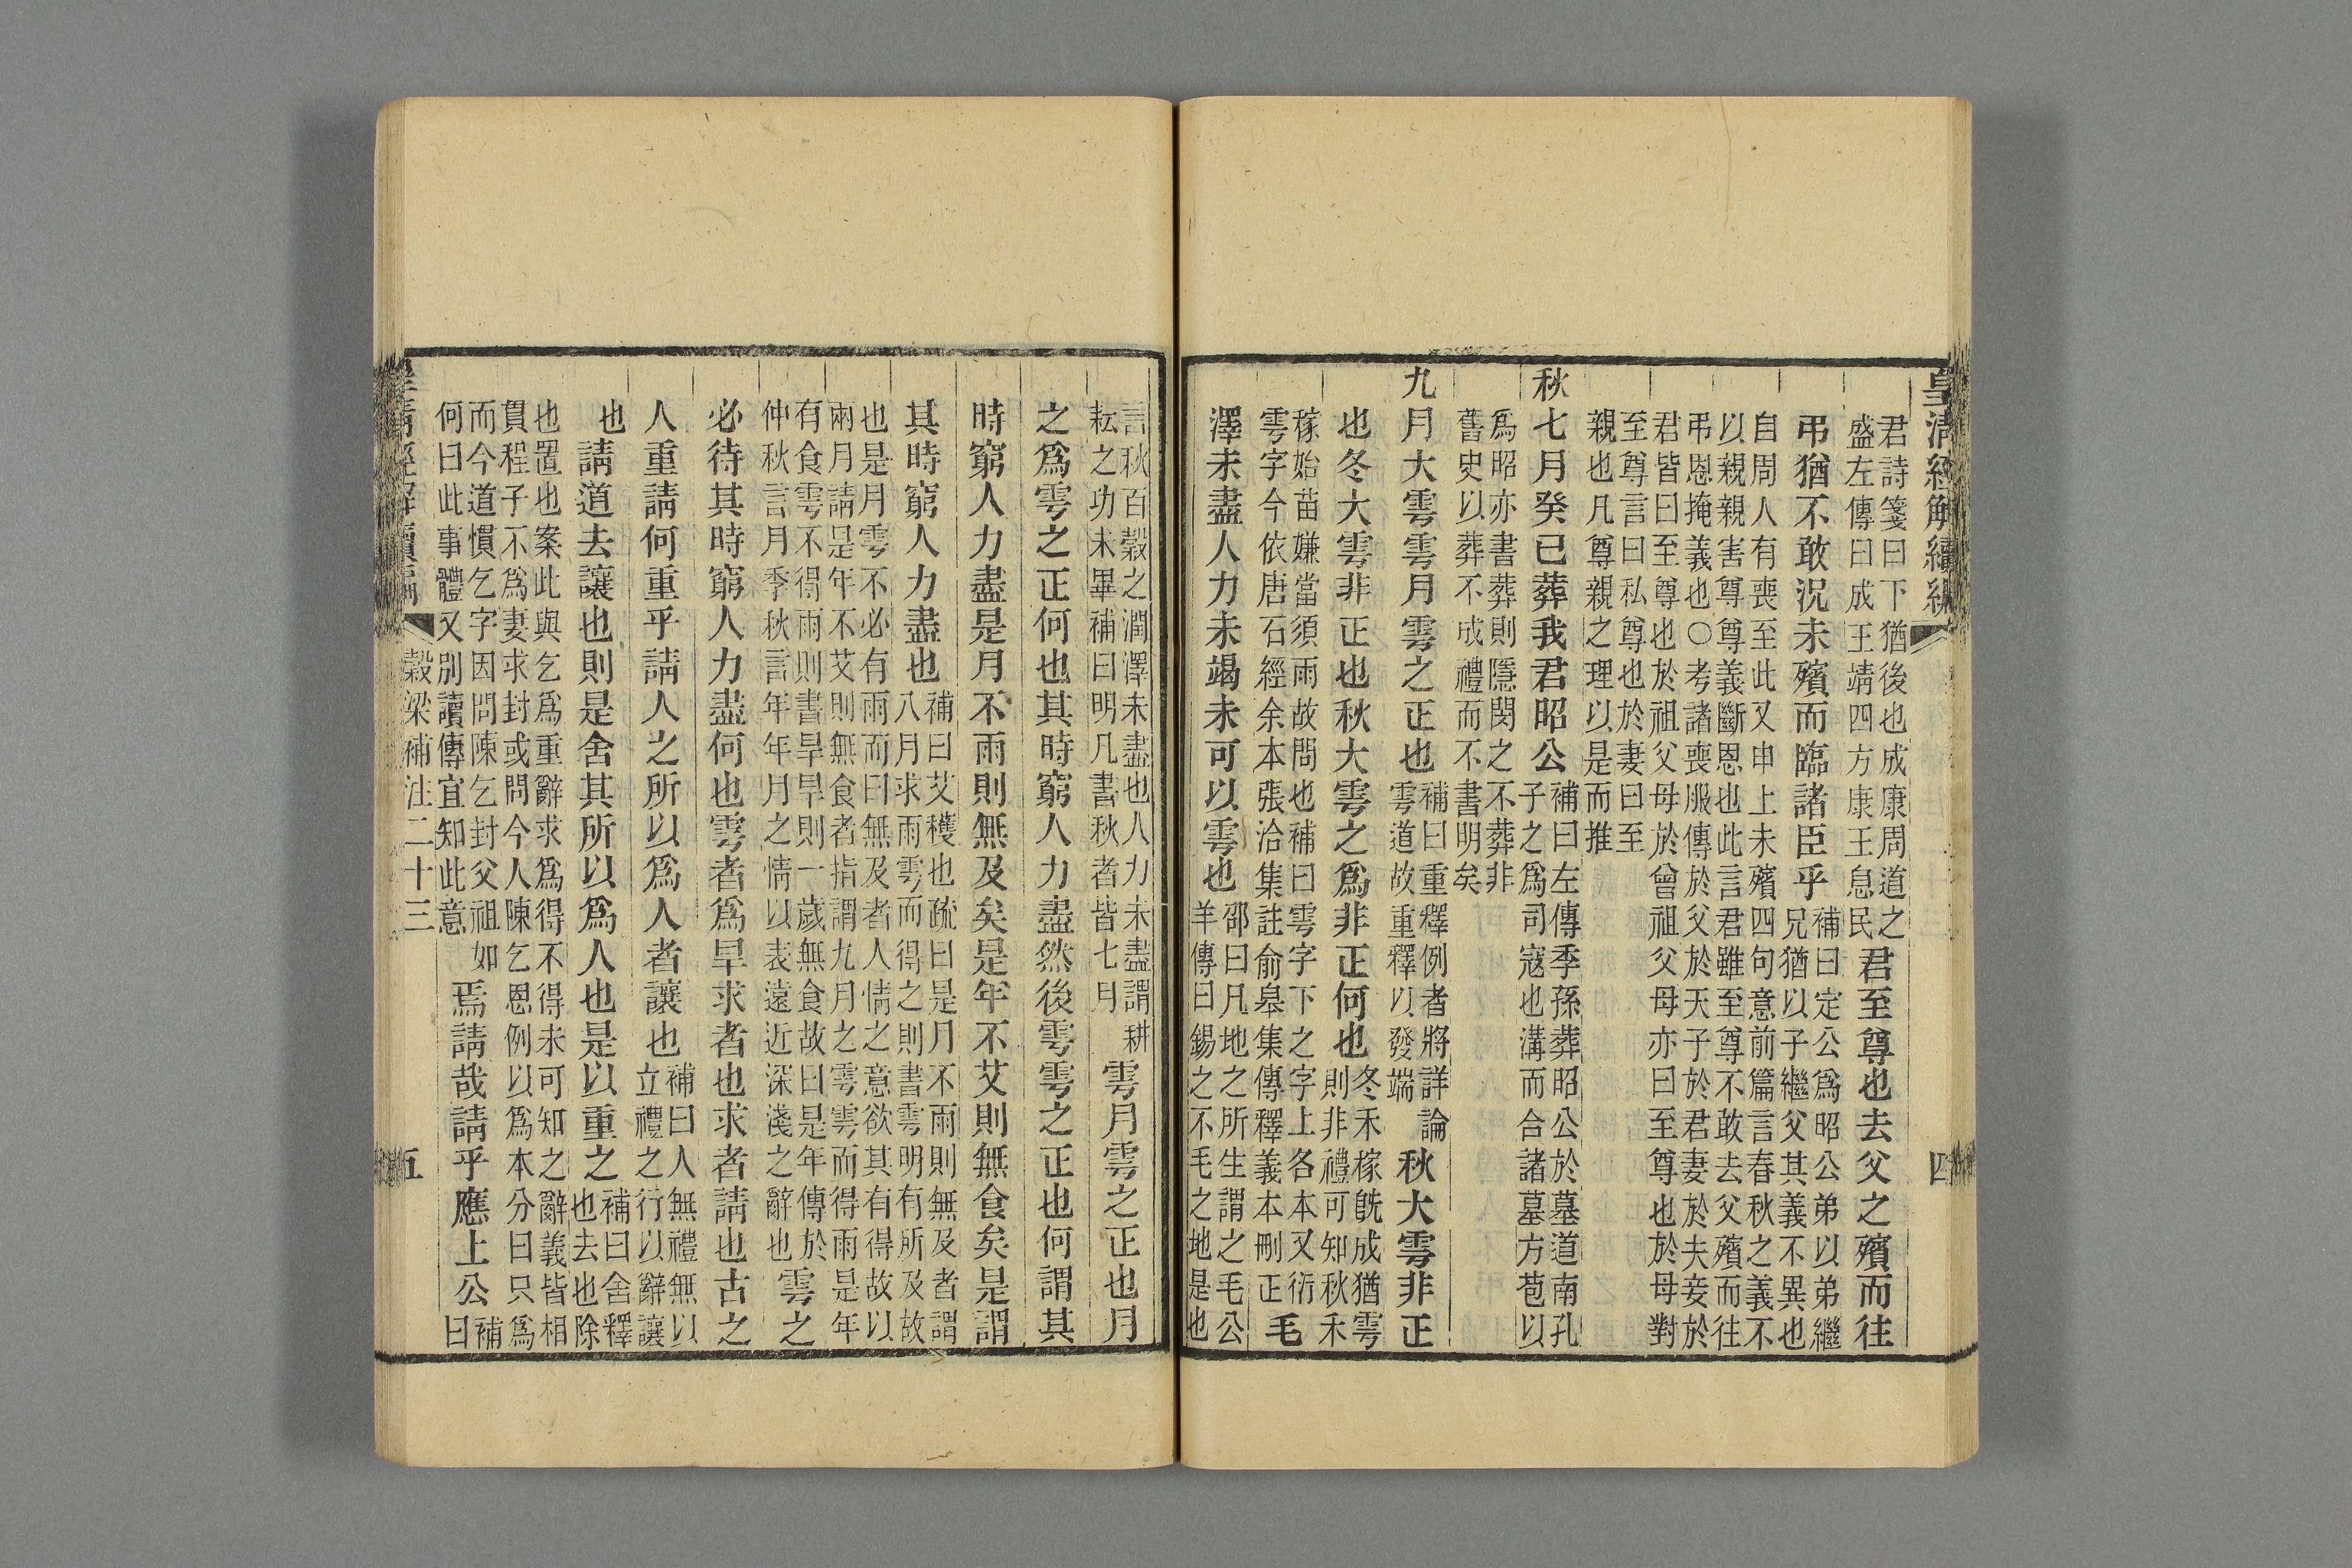 皇清經解續編 四
君詩箋曰下猶後也成康周道之
盛左傳曰成王靖四方康王息民
君至尊也去父之殯而往
弔猶不敢況未殯而臨諸臣乎
補曰定公爲昭公弟以弟繼
兄猶以子繼父其義不異也
自周人有喪至此又申上未殯四句意前篇言春秋之義不
以親親害尊尊義斷恩也此言君雖至尊不敢去父殯而往
弔恩掩義也○考諸喪服傳於父於天子於君妻於夫妾於
君皆曰至尊也於祖父母於曾祖父母亦曰至尊也於母對
至尊言曰私尊也於妻曰至
親也凡尊親之理以是而推
秋七月癸巳葬我君昭公
補曰左傳季孫葬昭公於墓道南孔
子之爲司寇也溝而合諸墓方苞以
爲昭亦書葬則隱閔之不葬非
舊史以葬不成禮而不書明矣
九月大雩雩月雩之正也
補曰重釋例者將詳論
雩道故重釋以發端
秋大雩非正
也冬大雩非正也秋大雩之爲非正何也
冬禾稼旣成猶雩
則非禮可知秋禾
稼始苗嫌當須雨故問也補曰雩字下之字上各本又衍
雩字今依唐石經余本張洽集註俞皋集傳釋義本刪正
毛
澤未盡人力未竭未可以雩也
邵曰凡地之所生謂之毛公
羊傳曰錫之不毛之地是也
言秋百穀之潤澤未盡也人力未盡謂耕
耘之功未畢補曰明凡書秋者皆七月
雩月雩之正也月
之爲雩之正何也其時窮人力盡然後雩雩之正也何謂其
時窮人力盡是月不雨則無及矣是年不艾則無食矣是謂
其時窮人力盡也
補曰艾穫也疏曰是月不雨則無及者謂
八月求雨雩而得之則書雩明有所及故
也是月雩不必有雨而曰無及者人情之意欲其有得故以
兩月請是年不艾則無食者指謂九月之雩雩而得雨是年
有食雩不得雨則書旱旱則一歲無食故曰是年傳於
仲秋言月季秋言年年月之情以表遠近深淺之辭也
雩之
必待其時窮人力盡何也雩者爲旱求者也求者請也古之
人重請何重乎請人之所以爲人者讓也
補曰人無禮無以
立禮之行以辭讓
也
請道去讓也則是舍其所以爲人也是以重之
補曰舍釋
也去也除
也置也案此與乞爲重辭求爲得不得未可知之辭義皆相
貫程子不爲妻求封或問今人陳乞恩例以爲本分曰只爲
而今道慣乞字因問陳乞封父祖如
何曰此事體又別讀傳宜知此意
焉請哉請乎應上公
補
曰
皇清經解續編 穀梁補注二十三 五